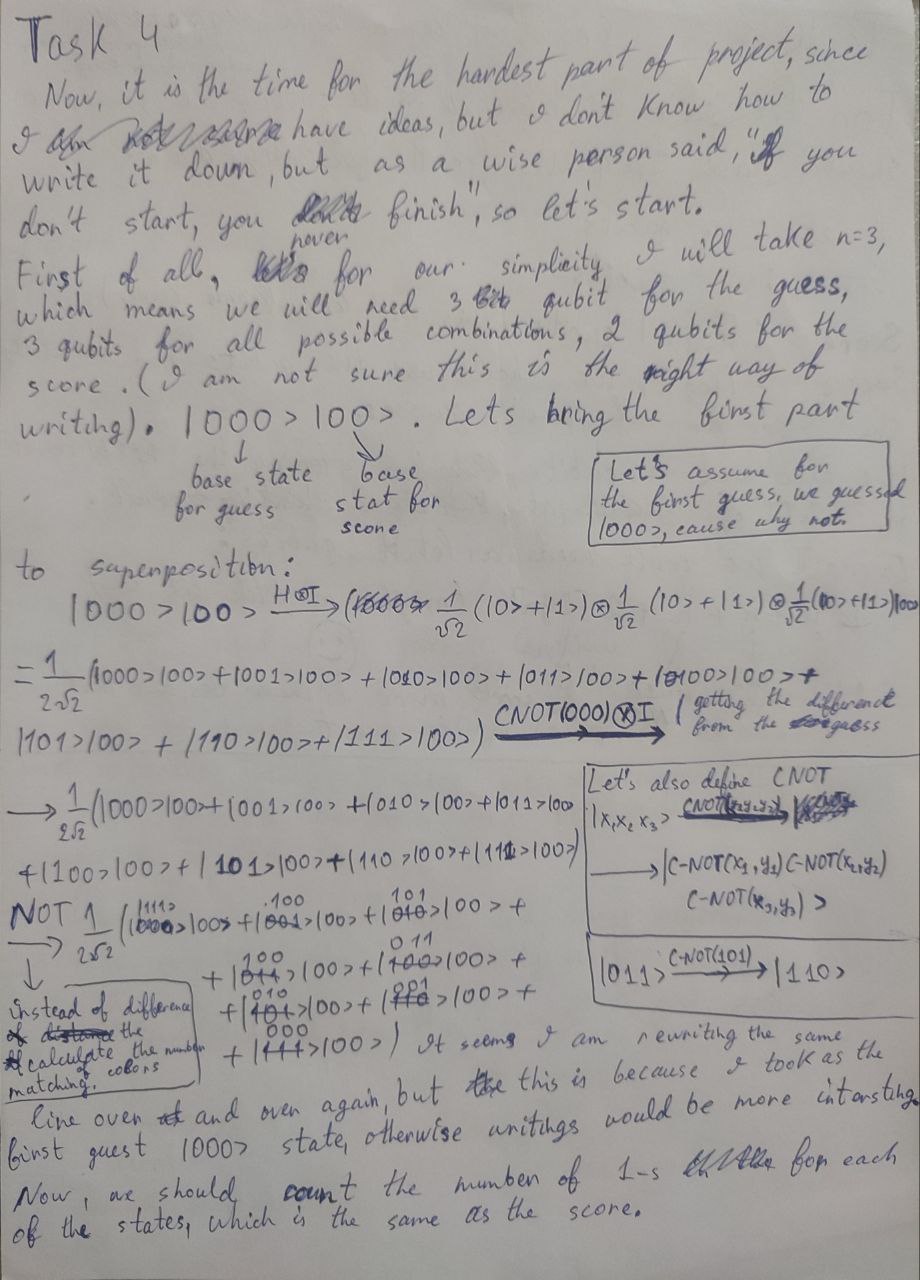 Task 4
Now, it is the time for the hardest part of project, since
I have ideas, but I don't know how to
write it down, but as a wise person said, "If you
don't start, you never finish", so let's start.
First of all, for our simplicity I will take n=3,
which means we will need 3 qubit for the guess,
3 qubits for all possible combinations, 2 qubits for the
score. (I am not sure this is the right way of
writing). |000>|00>. Lets bring the first part
base state for guess
base stat for score
Let's assume for
the first guess, we guessed
|000>, cause why not.
to superposition:
|000>|00> H⊗I → ( 1/√2 (|0>+|1>)⊗ 1/√2 (|0>+|1>)⊗ 1/√2 (|0>+|1>)|00>
= 1/2√2 (|000>|00>+|001>|00>+|010>|00>+|011>|00>+|100>|00>+
|101>|00>+|110>|00>+|111>|00>) CNOT(000)⊗I →
getting the difference
from the guess
→ 1/2√2 (|000>|00>+|001>|00>+|010>|00>+|011>|00>
+|100>|00>+|101>|00>+|110>|00>+|111>|00>)
Let's also define CNOT
|x₁x₂x₃> →
→ |C-NOT(x₁,y₁) C-NOT(x₂,y₂)
C-NOT(x₃,y₃)>
|011> C-NOT(101) → |110>
NOT → 1/2√2 (|111>|00>+|100>|00>+|101>|00>+
+|100>|00>+|011>|00>+
+|010>|00>+|001>|00>+
+|000>|00>) It seems I am rewriting the same
instead of difference
the
calculate the number
of
matching colors
line over and over again, but this is because I took as the
first guest |000> state, otherwise writings would be more intersting.
Now, we should count the number of 1-s for each
of the states, which is the same as the score.